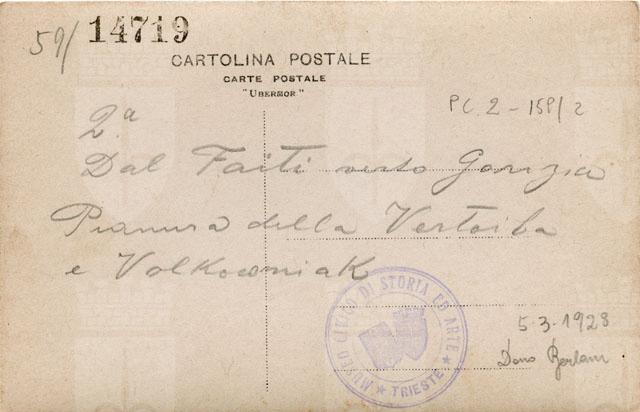 59/ 14719
CARTOLINA POSTALE
CARTE POSTALE
"UBERMOR"
PC. 2 - 158/2
2.a
Dal Faiti verso Gorizia
Pianura della Vertoiba
e Volkowniak
MUSEO CIVICO DI STORIA ED ARTE
★ TRIESTE ★
5.3.1928
Dono